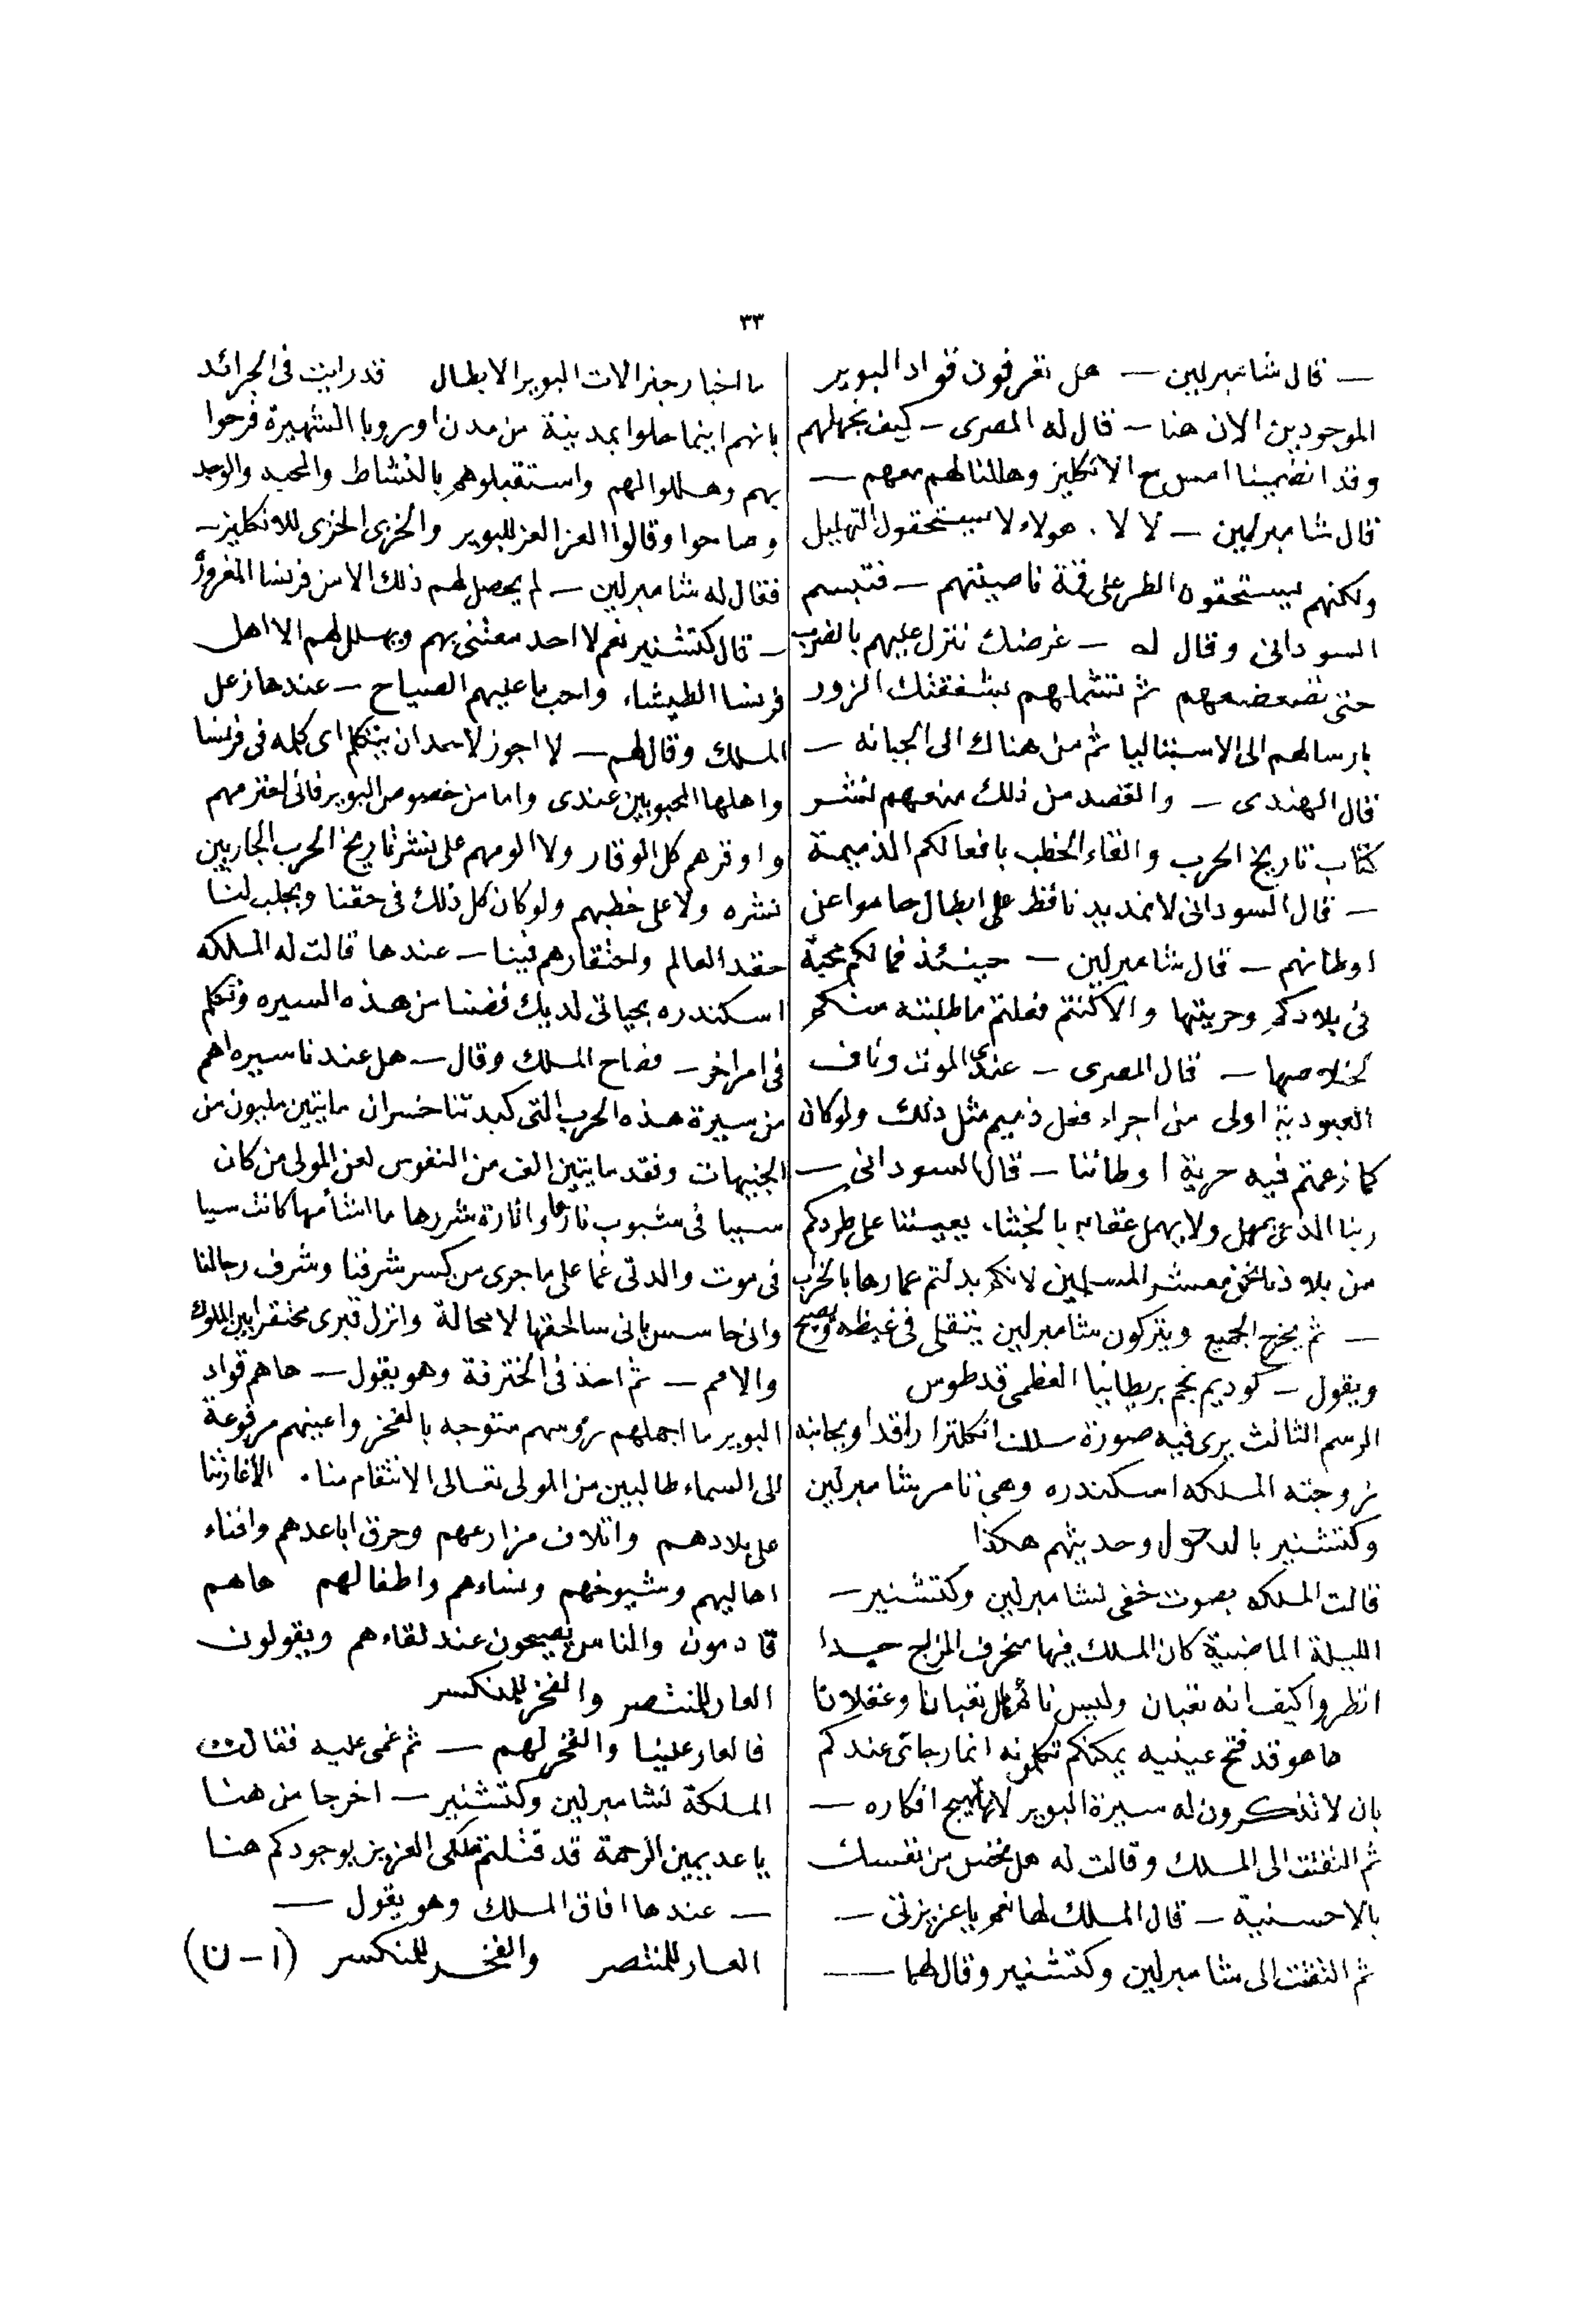 ٣٣
— قال شامبرلين — هل تعرفون قواد البوير
الموجودين الان هنا — قال له المصرى — كيف نجهلهم
وقد انضمينا امس مع الانكليز وهللنا لهم معهم —
قال شامبرلين — لا لا . هولاء لا يستحقون التهليل
ولكنهم يستحقون الطرعلى قمة ناصيتهم — فتبسم
السودانى وقال له — غرضك ننزل عليهم بالضرب
حتى نضعضعهم ثم تشملهم بشفقتك الزور
بارسالهم الى الاسبتاليا ثم من هناك الى الجبانه —
قال الهندى — والقصد من ذلك منعهم لنشر
كتاب تاريخ الحرب والقاء الخطب بافعالكم الذميمة
— قال السودانى لا نمد يدنا قط على ابطال حاموا عن
اوطانهم — قال شامبرلين — حينئذ فما لكم محبة
فى بلادكم وحريتها والا كنتم فعلتم ما طلبته منكم
لخلاصها — قال المصرى — عندى الموت وتاف
العبودية اولى من اجراء فعل ذميم مثل ذلك ولو كان
كما زعمتم فيه حرية اوطاننا — قال السودانى —
ربنا الذى يمهل ولا يهمل عقابه بالخبثاء يعيننا على طردكم
من بلادنا نحن معشر المسلمين لانكم بدلتم عمارها بالخراب
— ثم يخرج الجميع ويتركون شامبرلين يتقلى فى غيظه ويصيح
ويقول — كوديم نجم بريطانيا العظمى قد طوس
الرسم الثالث يرى فيه صورة ملك انكلترا راقدا وبجانبه
زوجته الملكه اسكندره وهى تامر شامبرلين
وكتشنير بالدخول وحديثهم هكذا
قالت الملكه بصوت خفى لشامبرلين وكتشنير —
الليلة الماضية كان الملك فيها منحرف المزاج جدا
انظروا كيف انه تعبان وليس نائم بل تعبانا وغفلانا
ها هو قد فتح عينيه يمكنكم تكلمونه انما رجائى عندكم
بان لا تذكرون له سيرة البوير لانها تهيج افكاره —
ثم التفتت الى الملك وقالت له هل تحس من نفسك
بالاحسنية — قال الملك لها نعم يا عزيزتى —
ثم التفت الى شامبرلين وكتشنير وقال لهما —
ما اخبار جنرالات البوير الابطال قد رايت فى الجرائد
بانهم اينما حلوا بمدينة من مدن اوروبا الشهيرة فرحوا
بهم وهللوا لهم واستقبلوهم بالنشاط والمحبد والوجد
وصاحوا وقالوا العز العز للبوير والخزى الخزى للانكليز —
فقال له شامبرلين — لم يحصل لهم ذلك الا من فرنسا المغرورة
— قال كتشنير نعم لا احد معتنى بهم ويهلل لهم الا اهل
فرنسا الطيشاء واحباء عليهم الصياح — عندها زعل
الملك وقال لهم — لا اجوز لاحد ان يتكلم اى كلمه فى فرنسا
واهلها المحبوبين عندى واما من خصوص البوير فانى احترمهم
واوقرهم كل الوقار ولا الومهم على نشر تاريخ الحرب الجاريين
نشره ولا على خطبهم ولو كان كل ذلك فى حقنا ويجلب لنا
حقد العالم واحتقارهم فينا — عندها قالت له الملكه
اسكندره بحياتى لديك فضنا من هذه السيره وتكلم
فى امر اخر — فصاح الملك وقال — هل عندنا سيره اهم
من سيرة هذه الحرب التى كبدتنا خسران مايتين مليون من
الجنيهات وفقد مايتين الف من النفوس لعن المولى من كان
سببا فى شبوب نارها واثارة شررها ما اشأمها كانت سببا
فى موت والدتى غما على ما جرى من كسر شرفنا وشرف رجالنا
وانى حاسس بانى سالحقها لا محالة وانزل قبرى محتقرا بين الملوك
والامم — ثم اخذ فى الخترفة وهو يقول — ها هم قواد
البوير ما اجملهم رؤسهم متوجه بالفخر واعينهم مرفوعة
الى السماء طالبين من المولى تعالى الانتقام منا . لاغارتنا
على بلادهم واتلاف مزارعهم وحرق اباعدهم وافناء
اهاليهم وشيوخهم ونساءهم واطفالهم ها هم
قادمون والناس يصيحون عند لقاءهم ويقولون
العار للمنتصر والفخر للمنكسر
فالعار علينا والفخر لهم — ثم غمى عليه فقالت
الملكة لشامبرلين وكتشنير — اخرجا من هنا
يا عديمين الرحمة قد قتلتم ملكى العزيز بوجودكم هنا
— عندها افاق الملك وهو يقول —
العار للمنتصر والفخر للمنكسر (ا — ن)